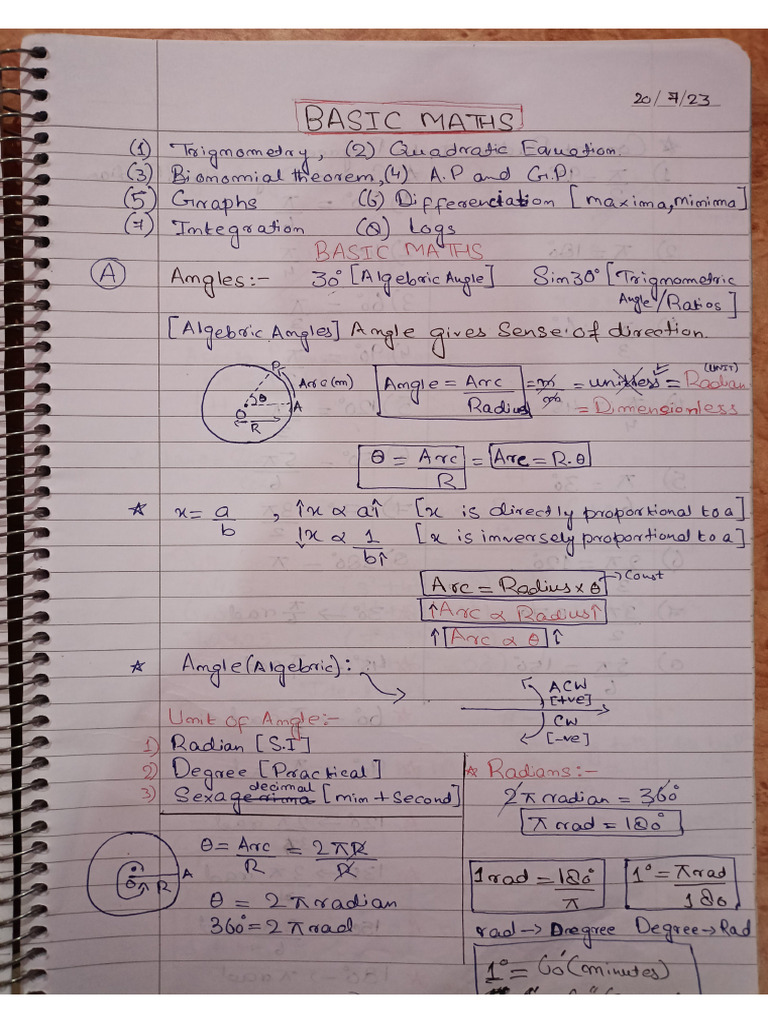 20/7/23
BASIC MATHS
(1) Trignometry, (2) Quadratic Equation.
(3) Bionomial theorem, (4) A.P and G.P.
(5) Graphs (6) Differenciation [maxima, minima]
(7) Integration (8) Logs
BASIC MATHS
(A) Angles:- 30° [Algebric Angle] Sin30° [Trignometric Angle/Ratios]
[Algebric Angles] Angle gives Sense of direction.
P
Arc(m)
θ
O
A
R
Angle = Arc/Radius = m/m = unitless = Radian (UNIT)
= Dimensionless
θ = Arc/R = Arc = R.θ
* x = a/b , ↑x ∝ a↑ [x is directly proportional to a]
↓x ∝ 1/b↑ [x is inversely proportional to a]
Arc = Radius × θ → Const
↑Arc ∝ Radius↑
↑ Arc ∝ θ ↑
* Angle (Algebric):
ACW [+ve]
CW [-ve]
Unit of Angle:-
1) Radian [S.I]
2) Degree [Practical]
3) Sexadecimal [min + Second]
O R A
θ = Arc/R = 2πR/R
θ = 2π radian
360° = 2π rad
* Radians:-
2π radian = 360°
π rad = 180°
1 rad = 180°/π
1° = π rad/180
rad → Degree Degree → Rad
1° = 60' (minutes)